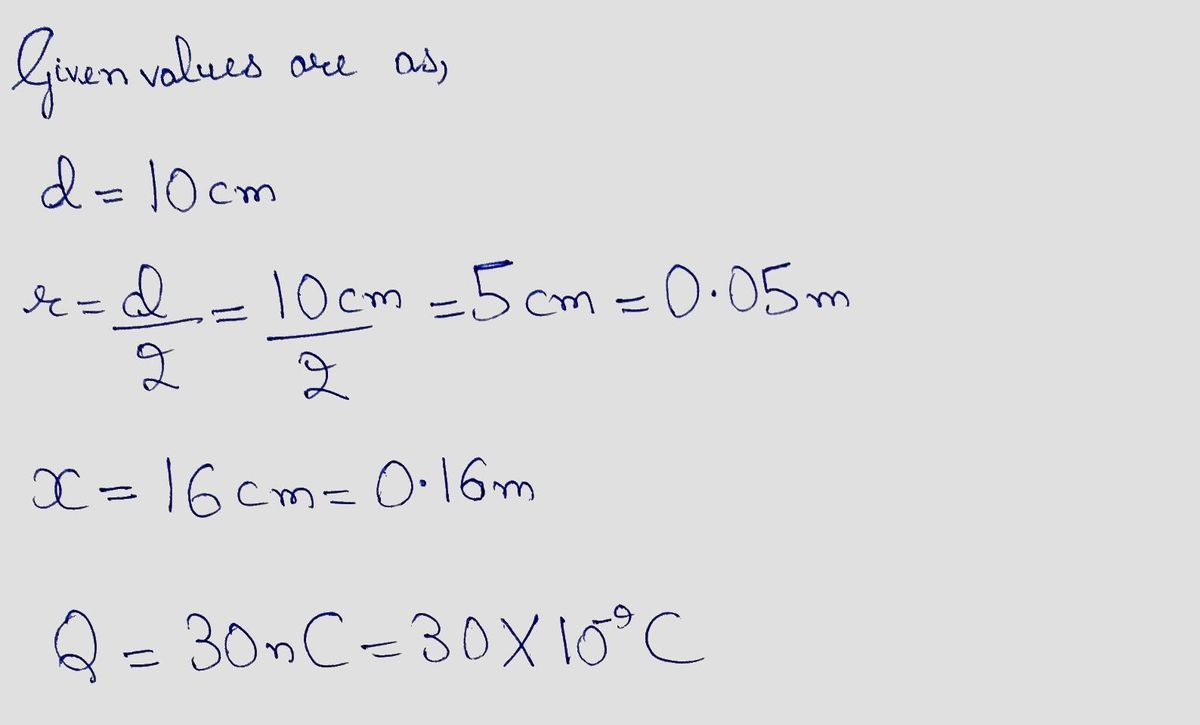 Given values are as,
d = 10cm
r = d/2 = 10cm/2 = 5cm = 0.05m
x = 16cm = 0.16m
Q = 30nC = 30 X 10⁻⁹ C